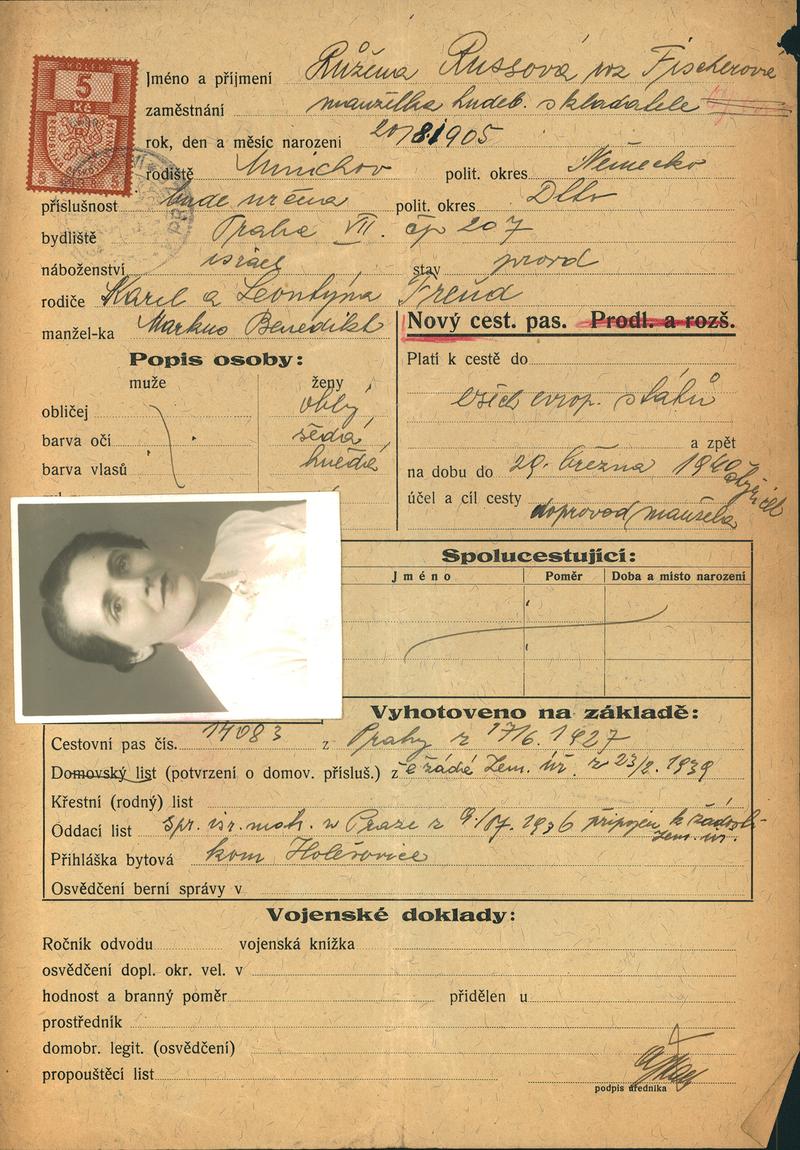 5
Kč
Jméno a příjmení Růžena Russová roz Fischerová
zaměstnání manželka hudeb. skladatele
rok, den a měsíc narození 20/8.1905
rodiště Mnichov polit. okres Německo
příslušnost bude určena polit. okres Dtto
bydliště Praha VII. čp 207
náboženství israel stav provd
rodiče Karel a Leontýna Freud
manžel-ka Markus Benedikt
Nový cest. pas. Prodl. a rozš.
Popis osoby:
muže ženy
obličej oblý
barva očí šedá
barva vlasů hnědé
Platí k cestě do
všech evrop. států
a zpět
na dobu do 29. března 1940
účel a cíl cesty doprovod manžela
Spolucestující:
Jméno Poměr Doba a místo narození
Vyhotoveno na základě:
Cestovní pas čís. 14083 z Prahy z 17/6. 1927
Domovský list (potvrzení o domov. přísluš.) z Zem. úř. z 23/2. 1939
Křestní (rodný) list
Oddací list v Praze z 1936 připojen k žádosti
zem. úř.
Přihláška bytová kom Holešovice
Osvědčení berní správy v
Vojenské doklady:
Ročník odvodu vojenská knížka
osvědčení dopl. okr. vel. v
hodnost a branný poměr přidělen u
prostředník
domobr. legit. (osvědčení)
propouštěcí list
podpis úředníka